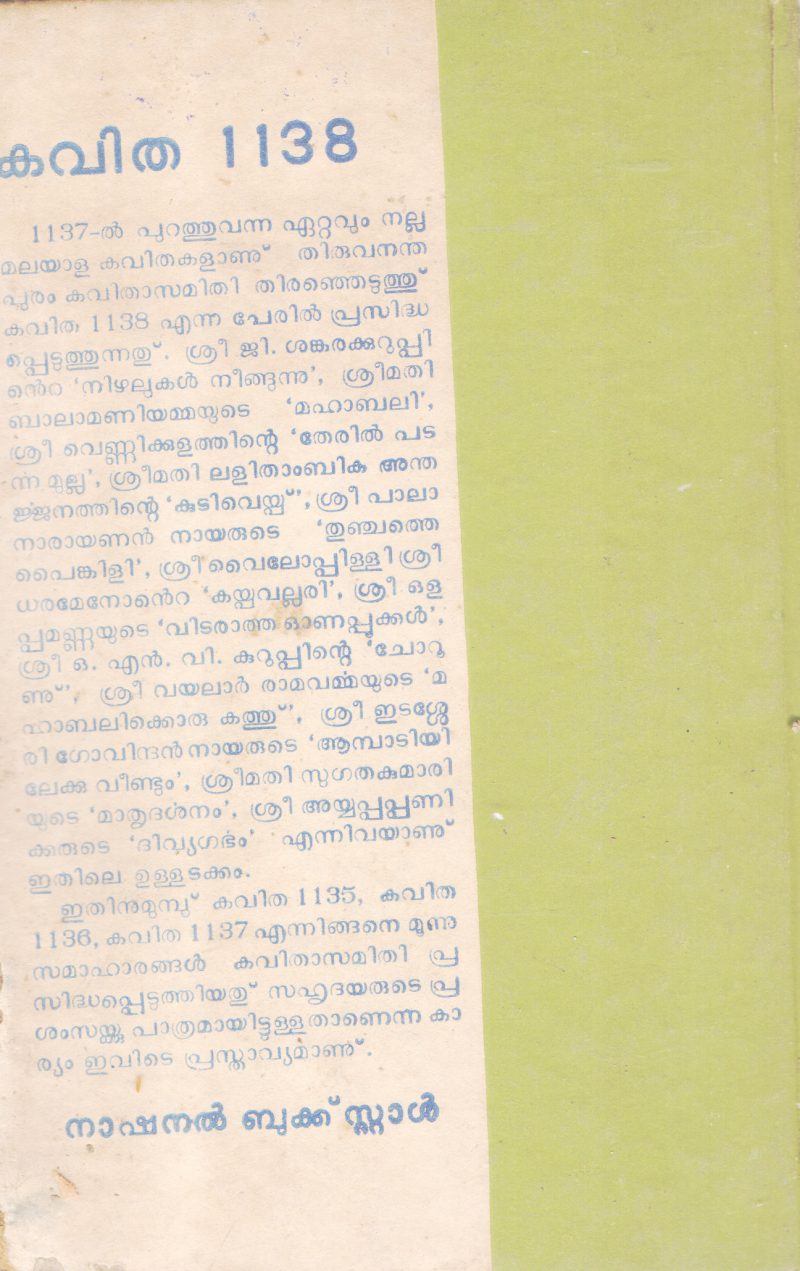 കവിത 1138
1137-ൽ പുറത്തുവന്ന ഏറ്റവും നല്ല
മലയാള കവിതകളാണു് തിരുവനന്ത
പുരം കവിതാസമിതി തിരഞ്ഞെടുത്തു്
കവിത 1138 എന്ന പേരിൽ പ്രസിദ്ധ
പ്പെടുത്തുന്നതു്. ശ്രീ ജി. ശങ്കരക്കുറുപ്പി
ൻെറ ‘നിഴലുകൾ നീങ്ങുന്നു’, ശ്രീമതി
ബാലാമണിയമ്മയുടെ ‘മഹാബലി’,
ശ്രീ വെണ്ണിക്കുളത്തിന്റെ ‘തേരിൽ പട
ന്ന മുല്ല’, ശ്രീമതി ലളിതാംബിക അന്ത
ജ്ജനത്തിന്റെ ‘കുടിവെയ്പു്’, ശ്രീ പാലാ
നാരായണൻ നായരുടെ ‘തുഞ്ചത്തെ
പൈങ്കിളി’, ശ്രീ വൈലോപ്പിള്ളി ശ്രീ
ധരമേനോൻെറ ‘കയ്പവല്ലരി’, ശ്രീ ഒള
പ്പമണ്ണയുടെ ‘വിടരാത്ത ഓണപ്പൂക്കൾ’,
ശ്രീ ഒ. എൻ. വി. കുറുപ്പിന്റെ ‘ചോറൂ
ണു്’, ശ്രീ വയലാർ രാമവർമ്മയുടെ ‘മ
ഹാബലിക്കൊരു കത്തു്’, ശ്രീ ഇടശ്ശേ
രി ഗോവിന്ദൻനായരുടെ ‘ആമ്പാടിയി
ലേക്കു വീണ്ടും’, ശ്രീമതി സുഗതകുമാരി
യുടെ ‘മാതൃദർശനം’, ശ്രീ അയ്യപ്പപ്പണി
ക്കരുടെ ‘ദിവ്യഗർഭം’ എന്നിവയാണു്
ഇതിലെ ഉള്ളടക്കം.
ഇതിനുമുമ്പു് കവിത 1135, കവിത
1136, കവിത 1137 എന്നിങ്ങനെ മൂന്നു
സമാഹാരങ്ങൾ കവിതാസമിതി പ്ര
സിദ്ധപ്പെടുത്തിയതു് സഹൃദയരുടെ പ്ര
ശംസയ്ക്കു പാത്രമായിട്ടുള്ളതാണെന്ന കാ
ര്യം ഇവിടെ പ്രസ്താവ്യമാണു്.
നാഷനൽ ബുക്ക് സ്റ്റാൾ